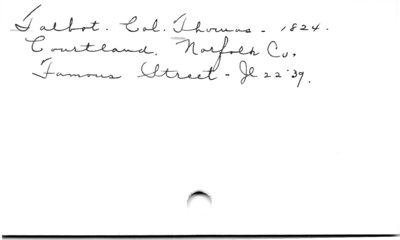 Talbot. Col. Thomas - 1824.
Courtland. Norfolk Co.
Famous Street - Je 22'39.